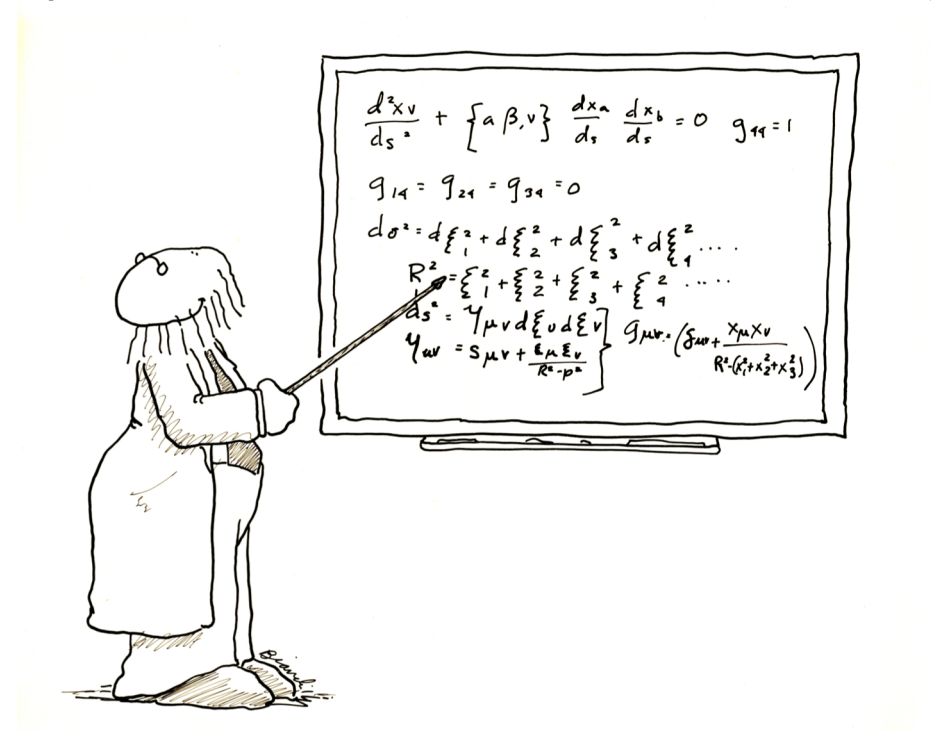 d²xν/ds² + {a β,ν} dxa/ds dxb/ds = 0 g44 = 1
g14 = g24 = g34 = 0
dσ² = dξ1² + dξ2² + dξ3² + dξ4² ....
R² = ξ1² + ξ2² + ξ3² + ξ4² .....
ds² = γμν dξυ dξν }
γμν = Sμν + ξμ ξν/R²-p² } gμν = (δμν + xμxν/R²-(x1²+x2²+x3²))